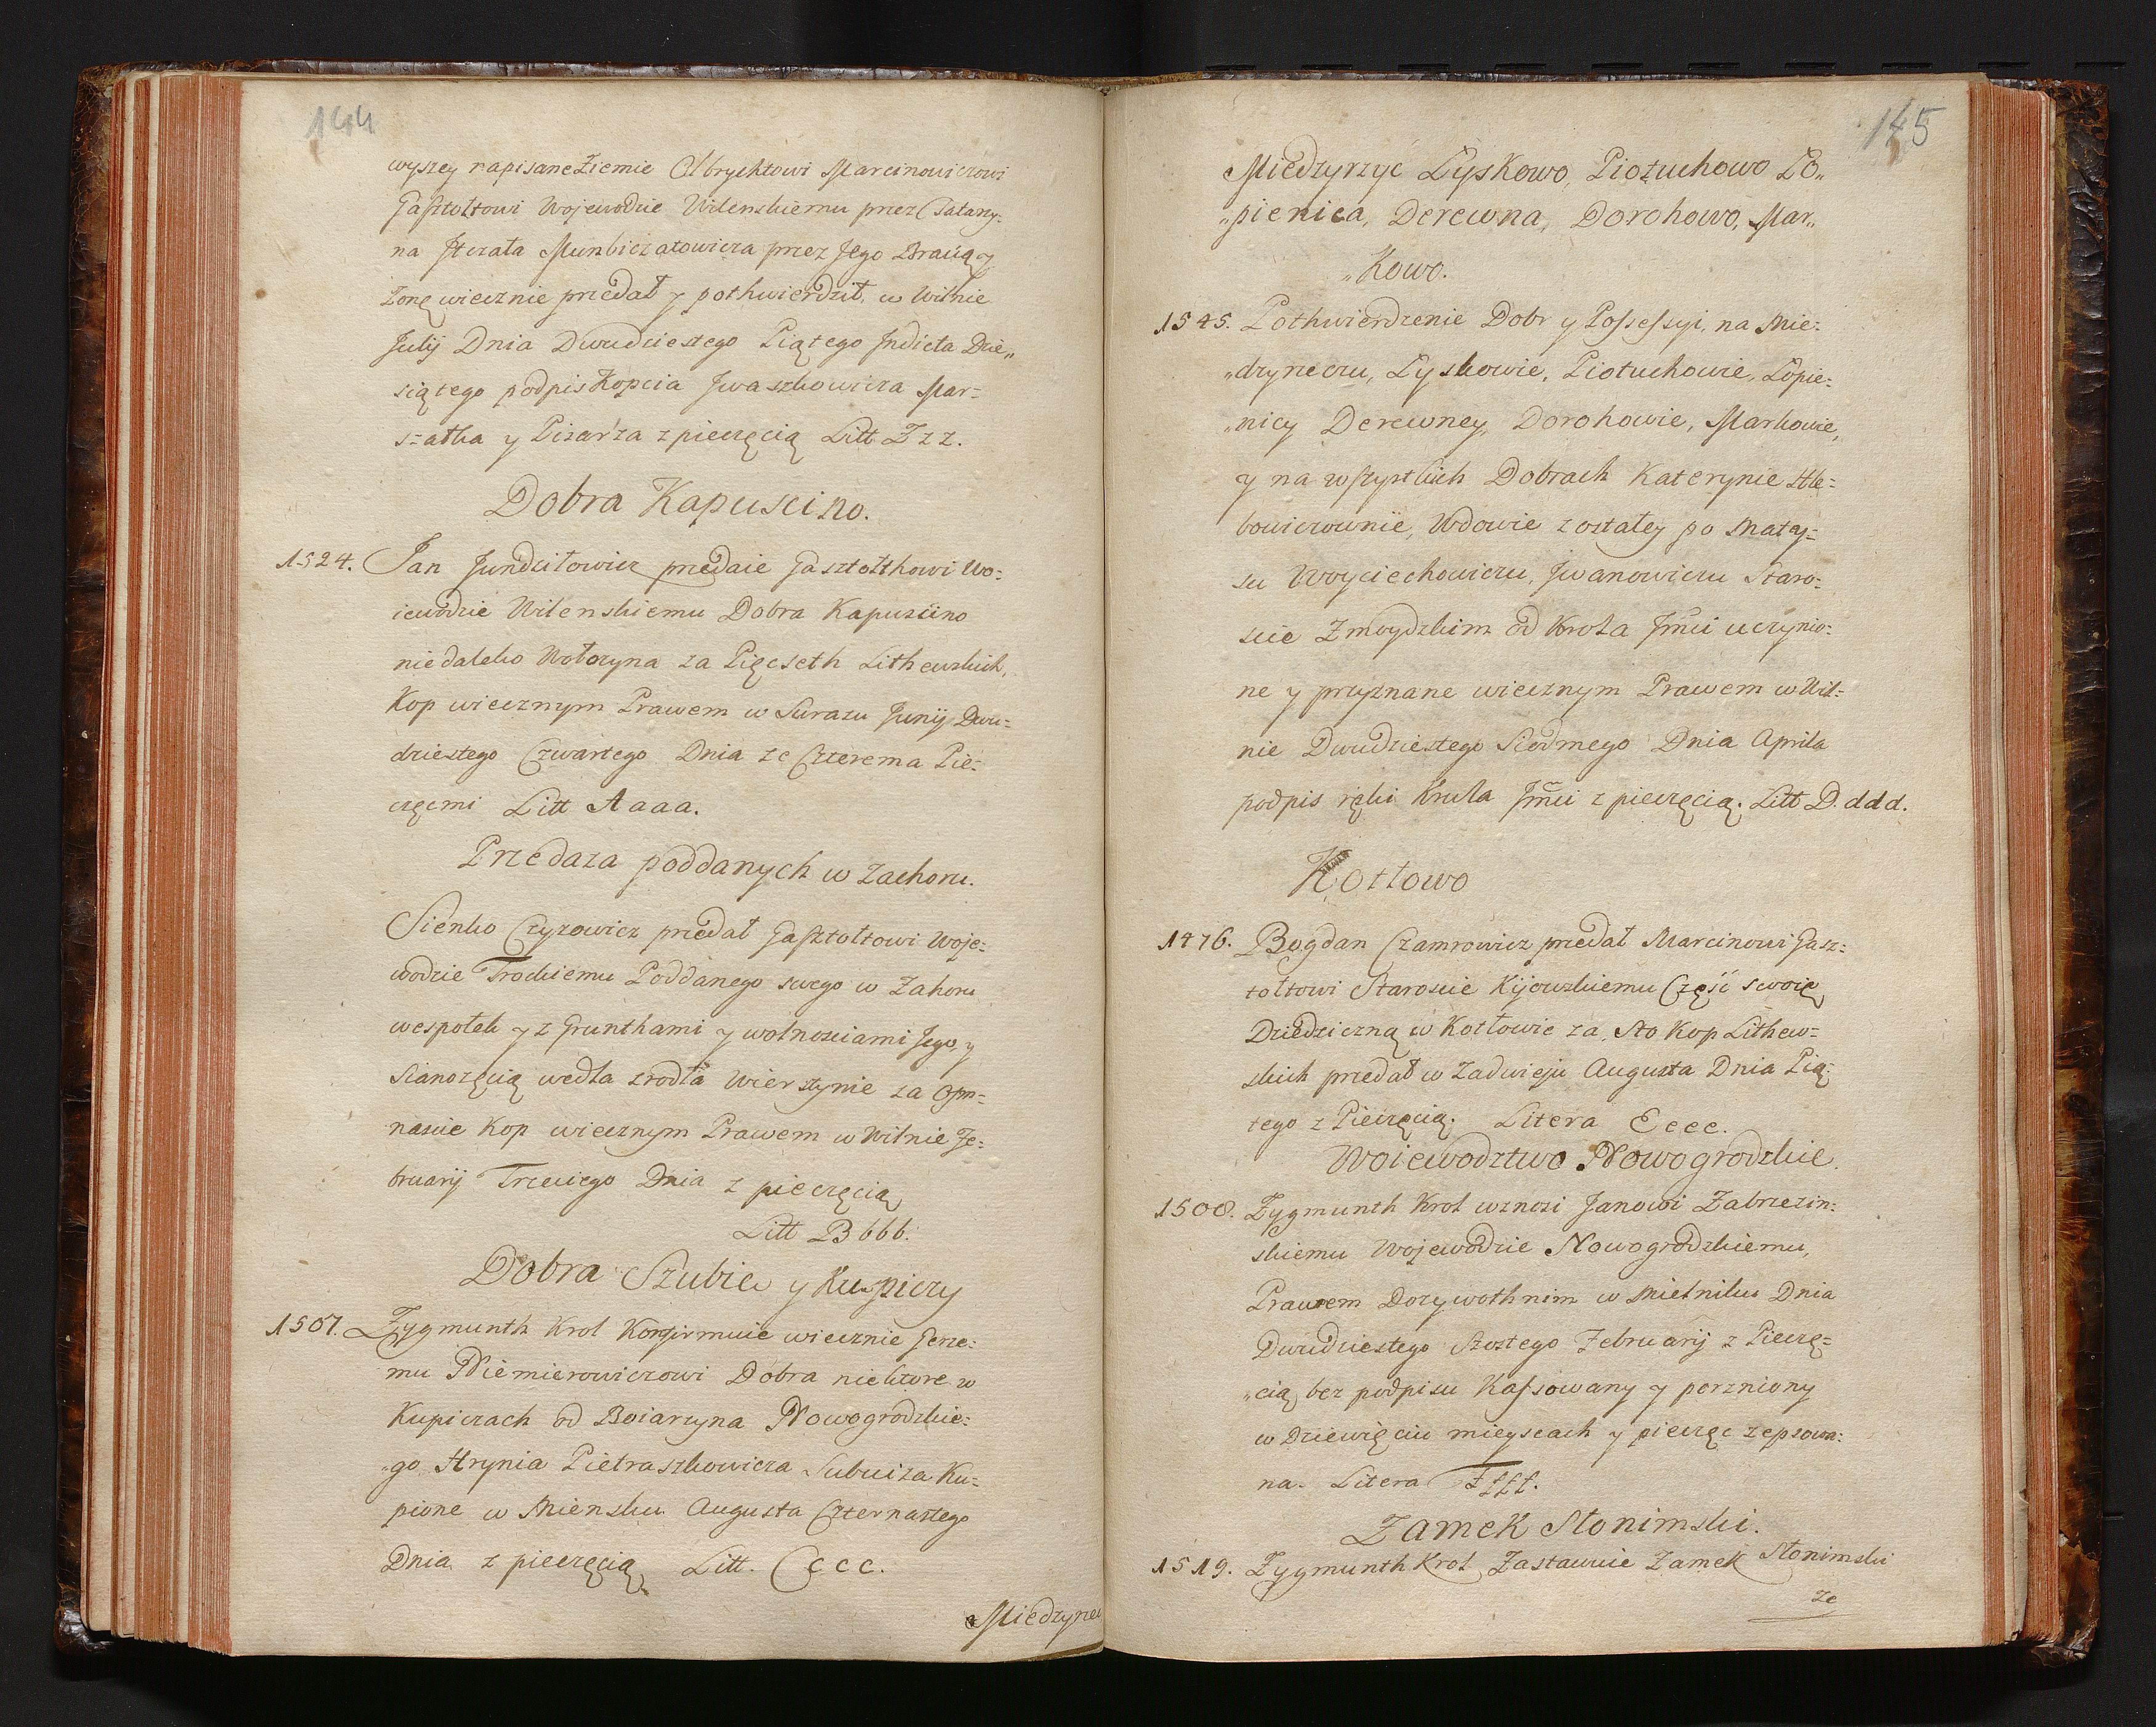 144
wyszey napisane Ziemie Olbrychtowi Marcinowiczowi
Gasztołtowi Wojewodzie Wilenskiemu przez
na przez Jego Bracią y
Zonę wiecznie przedał y pothwierdził w Wilnie
Julij Dnia Dwudziestego Piątego Indicta Dzie„
siątego podpis Kopcia Jwaszkowicza Mar=
szałka y Pisarza z pieczęcią Litt Zzz.
Dobra Kapuscino.
1524. Jan Jundziłowicz przedaie Gasztołthowi Wo:
iewodzie Wilenskiemu Dobra Kapuscino
niedaleko Wołozyna za Pięcseth Lithewskich
Kop wiecznym Prawem w Surazu Junij Dwu=
dziestego Czwartego Dnia ze Czterema Pie:
częcmi Litt Aaaa.
Przedaza poddanych w Zachoru.
Sienko Czyzowicz przedał Gasztołtowi Woje:
wodzie Trockiemu Poddanego swego w Zahoru
wespołek y z Grunthami y wolnosciami Jego, y
Sianozęcią wedla zrodła Wierszynie za Osm=
nascie Kop wiecznym Prawem w Wilnie Fe:
bruarij Trzeciego Dnia z pieczęcią
Litt Bbbb.
Dobra Szubie y Kupiczy
1507. Zygmunth Krol Konfirmuie wiecznie Jerze:
mu Niemierowiczowi Dobra niektore w
Kupiczach od Boiarzyna Nowogrodzkie:
„go Hrynia Pietraszkowicza Ku=
pione w Miensku Augusta Czternastego
Dnia z pieczęcią Litt. Cccc.
Miedzyrzec
145
Miedzyrzyć Łyskowo, Piotuchowo Ło„
„pienica, Derewna, Dorohowo, Mar„
„Kowo.
1545. Pothwierdzenie Dobr y Possessyi, na Mie:
„dzyrzeczu, Łyskowie, Piotuchowie, Łopie:
„nicy Derewney, Dorohowie, Markowie,
y na wszystkich Dobrach Katerynie Hle=
bowiczownie, Wdowie zostałey po Maty=
su Woyciechowiczu, Jwanowiczu Staro:
scie Zmoydzkim od Krola Jmci uczynio:
ne y przyznane wiecznym Prawem w Wil:
nie Dwudziestego Siodmego Dnia Aprila
podpis ręki Krula Jmci z pieczęcią. Litt D.ddd.
Kotłowo
1476. Bogdan Czamrowicz przedał Marcinowi Gasz=
tołtowi Staroscie Kijowskiemu Część swoię
Dziedziczną w Kotłowie za Sto Kop Lithew=
skich przedał w Zadwieju Augusta Dnia Pią:
tego z Pieczęcią. Litera Eeee.
Woiewodztwo Nowogrodzkie.
1508. Zygmunth Krol wznosi Janowi Zabrzezin:
skiemu Wojewodzie Nowogrodzkiemu,
Prawem Dozywothnim w Mielniku Dnia
Dwudziestego Szostego Februarij z Pieczę=
„cią bez podpisu Kassowany y porzniony
w Dziewięciu mieyscach y pieczęc zepsowa:
na. Litera Ffff.
Zamek Słonimski.
1519. Zygmunth Krol Zastawuie Zamek Słonimski
Ze